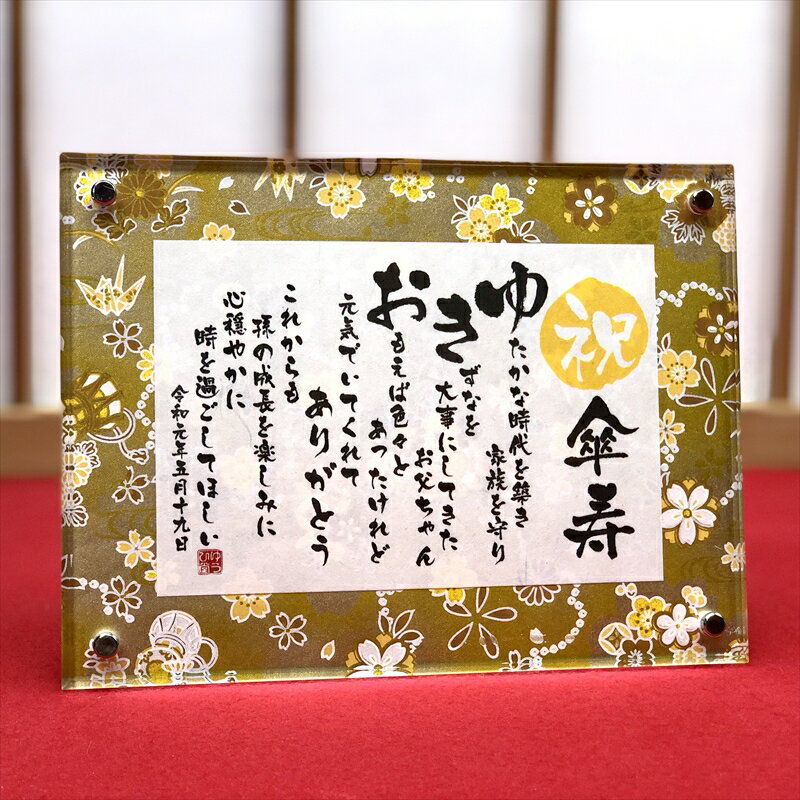 祝
傘寿
ゆたかな時代を築き
家族を守り
きずなを
大事にしてきた
お父ちゃん
おもえば色々と
あったけれど
元気でいてくれて
ありがとう
これからも
孫の成長を楽しみに
心穏やかに
時を過ごしてほしい
令和元年五月十九日
ゆうひ堂